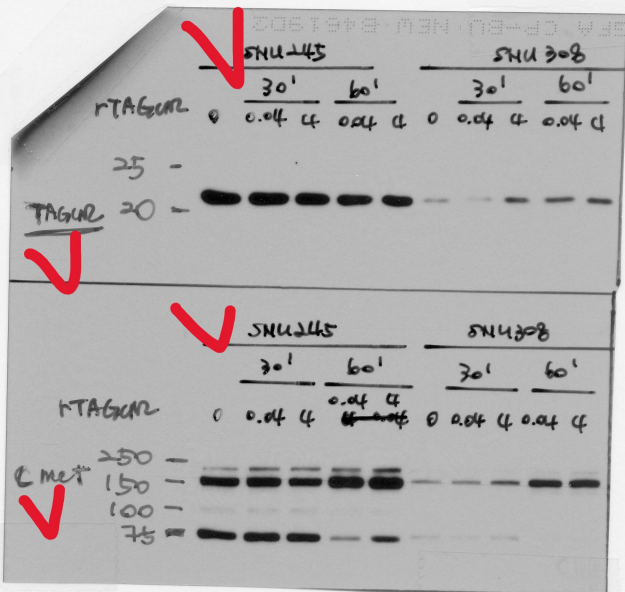 GFA CP-BU NEW B4619D2
SNU245 SNU308
30' 60' 30' 60'
rTAGLN2 0 0.04 4 0.04 4 0 0.04 4 0.04 4
25
TAGLN2 20
SNU245 SNU308
30' 60' 30' 60'
0.04 4
rTAGLN2 0 0.04 4 0 0.04 4 0.04 4
250
C met 150
100
75